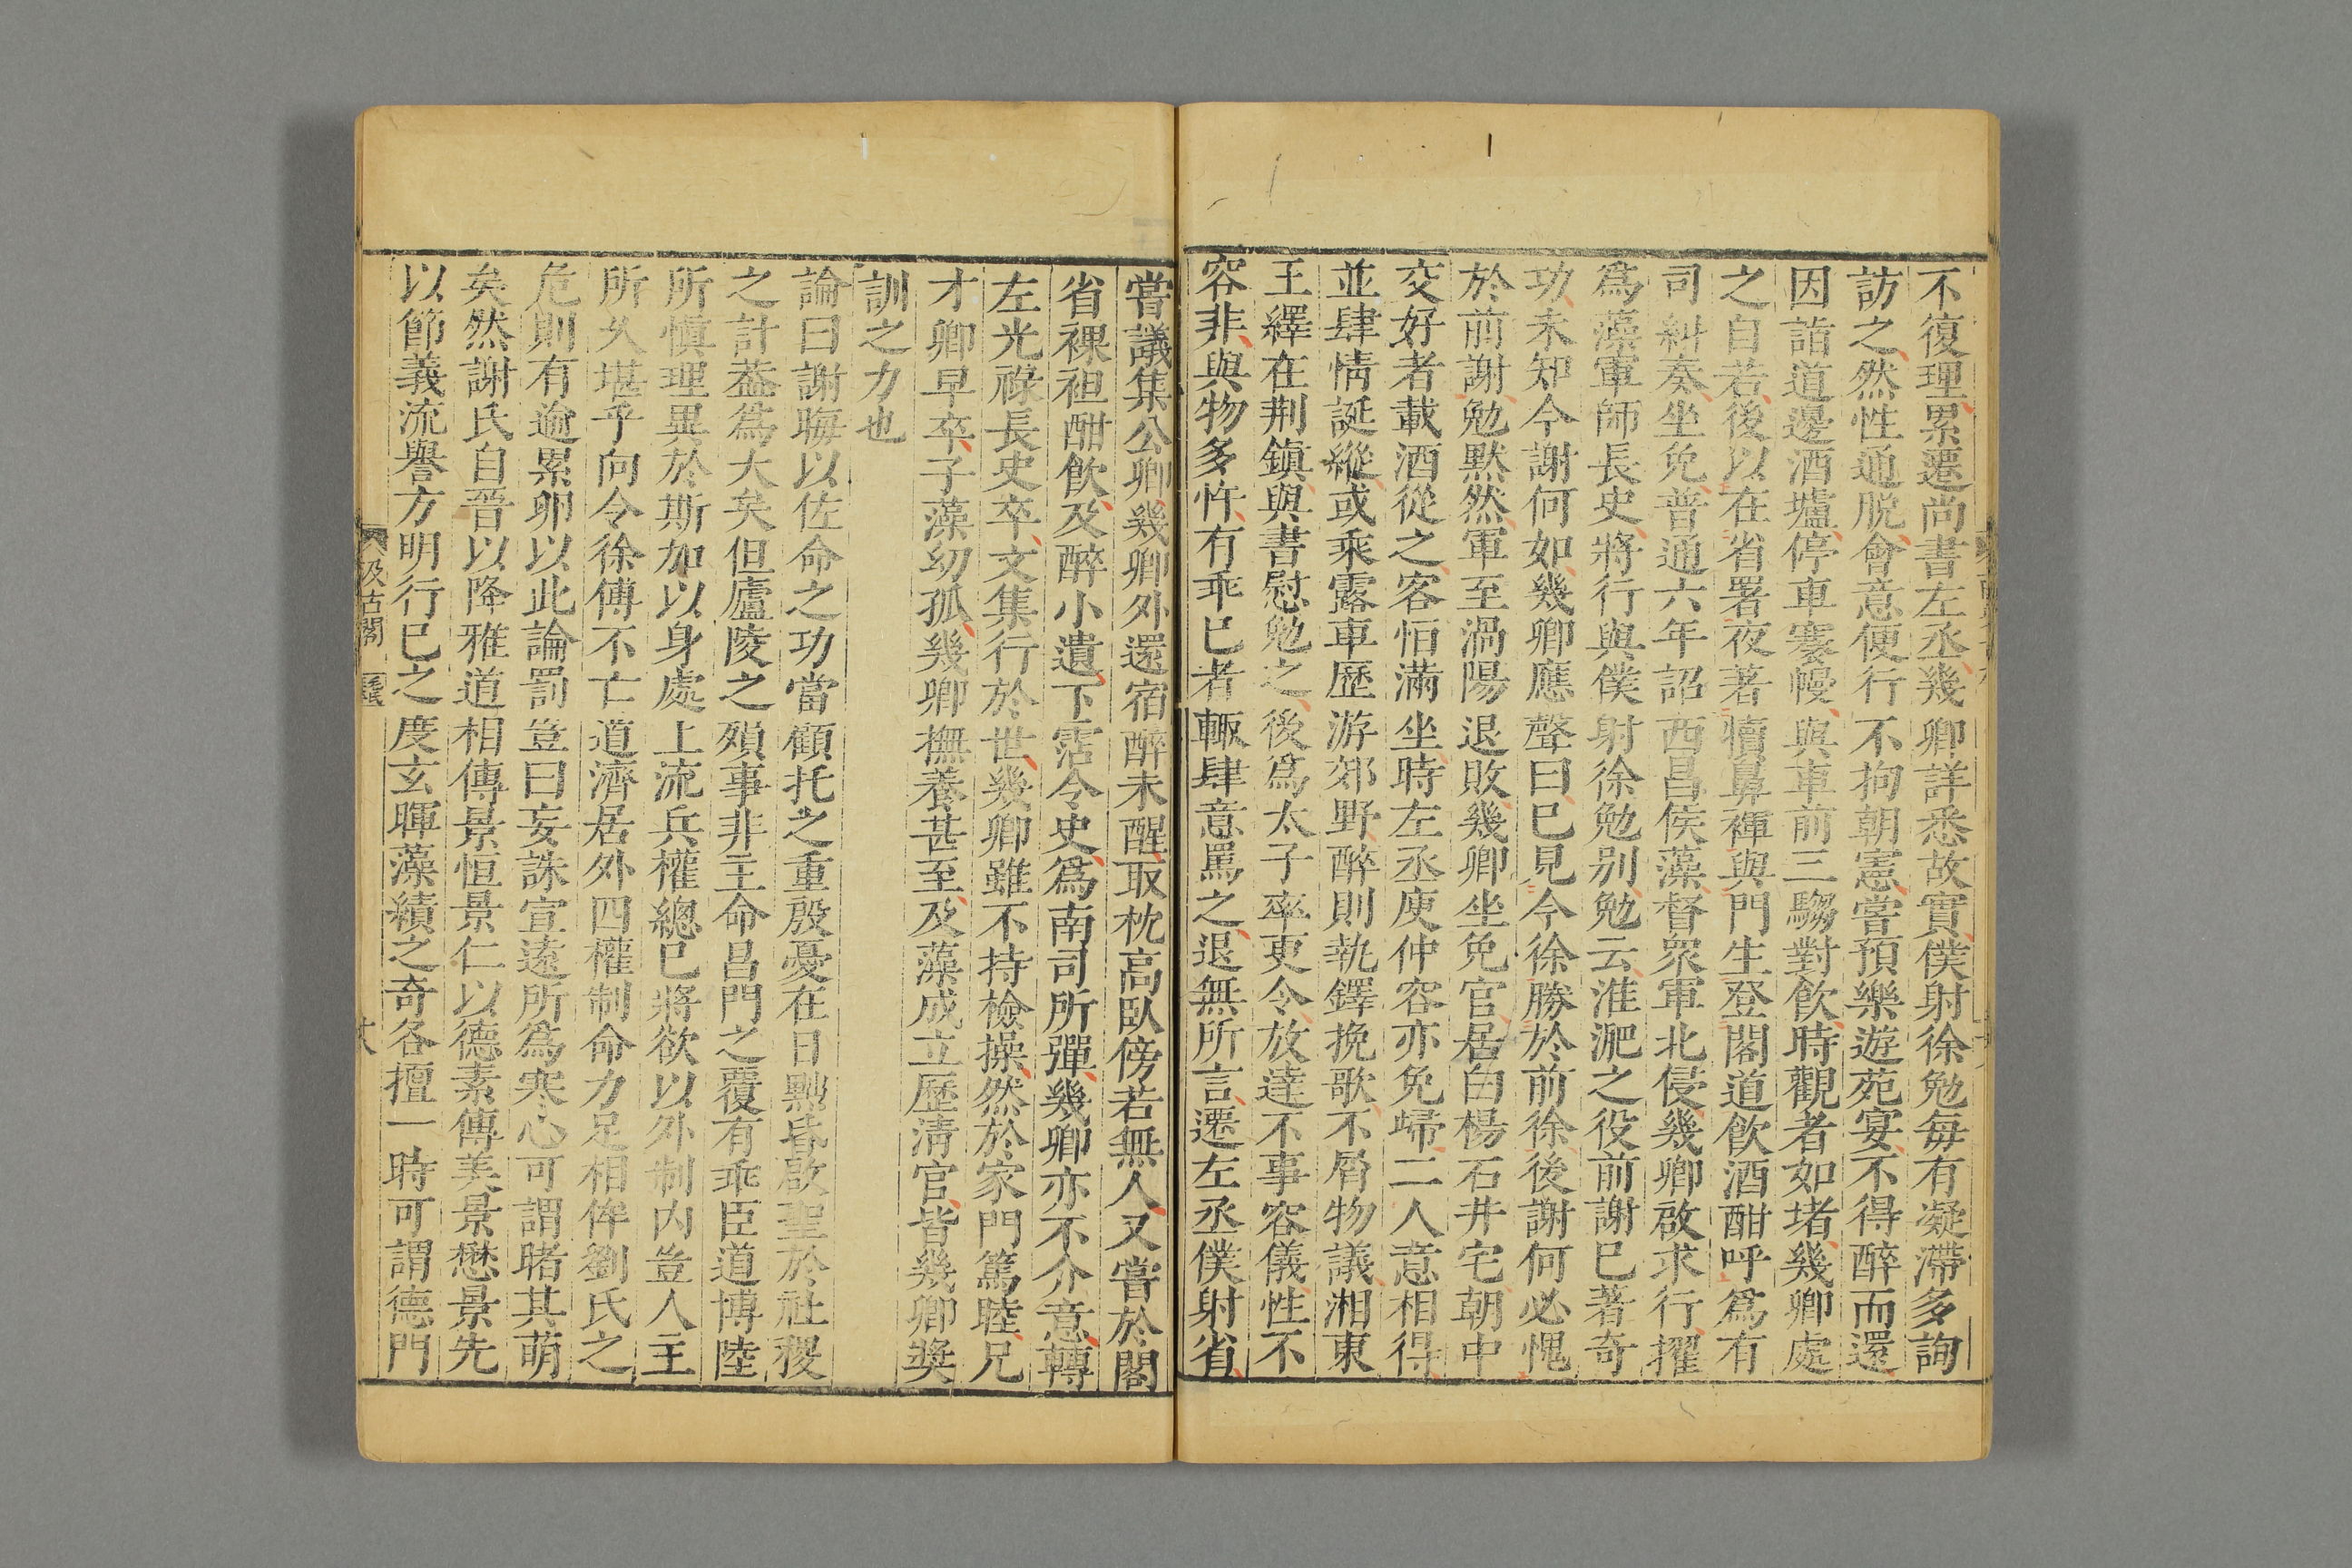 不復理累遷尚書左丞幾卿詳悉故實僕射徐勉每有凝滯多詢
訪之然性通脫會意便行不拘朝憲嘗預樂遊苑宴不得醉而還
因詣道邊酒壚停車褰幔與車前三騶對飲時觀者如堵幾卿處
之自若後以在省署夜著犢鼻褌與門生登閣道飲酒酣呼爲有
司糾奏坐免普通六年詔西昌侯藻督衆軍北侵幾卿啟求行擢
爲藻軍師長史將行與僕射徐勉别勉云淮淝之役前謝已著奇
功未知今謝何如幾卿應聲曰已見今徐勝於前徐後謝何必愧
於前謝勉黙然軍至渦陽退敗幾卿坐免官居白楊石井宅朝中
交好者載酒從之客恒滿坐時左丞庾仲容亦免歸二人意相得
並肆情誕縱或乘露車歷游郊野醉則執鐸挽歌不屑物議湘東
王繹在荆鎮與書慰勉之後爲太子率更令放達不事容儀性不
容非與物多忤有乖已者輒肆意罵之退無所言遷左丞僕射省
嘗議集公卿幾卿外還宿醉未醒取枕高臥傍若無人又嘗於閣
省裸袒酣飲及醉小遺下霑令史爲南司所彈幾卿亦不介意轉
左光祿長史卒文集行於世幾卿雖不持檢操然於家門篤睦兄
才卿早卒子藻幼孤幾卿撫養甚至及藻成立歷淸官皆幾卿奬
訓之力也
論曰謝晦以佐命之功當顧托之重殷憂在日黜昏啟聖於社稷
之計葢爲大矣但廬陵之殞事非主命昌門之覆有乖臣道博陸
所愼理異於斯加以身處上流兵權總已將欲以外制內豈人主
所久堪乎向令徐傅不亡道濟居外四權制命力足相侔劉氏之
危則有逾累卵以此論罰豈曰妄誅宣遠所爲寒心可謂睹其萌
矣然謝氏自晉以降雅道相傳景恒景仁以德素傳美景懋景先
以節義流譽方明行已之度玄暉藻績之奇各擅一時可謂德門
汲古閣